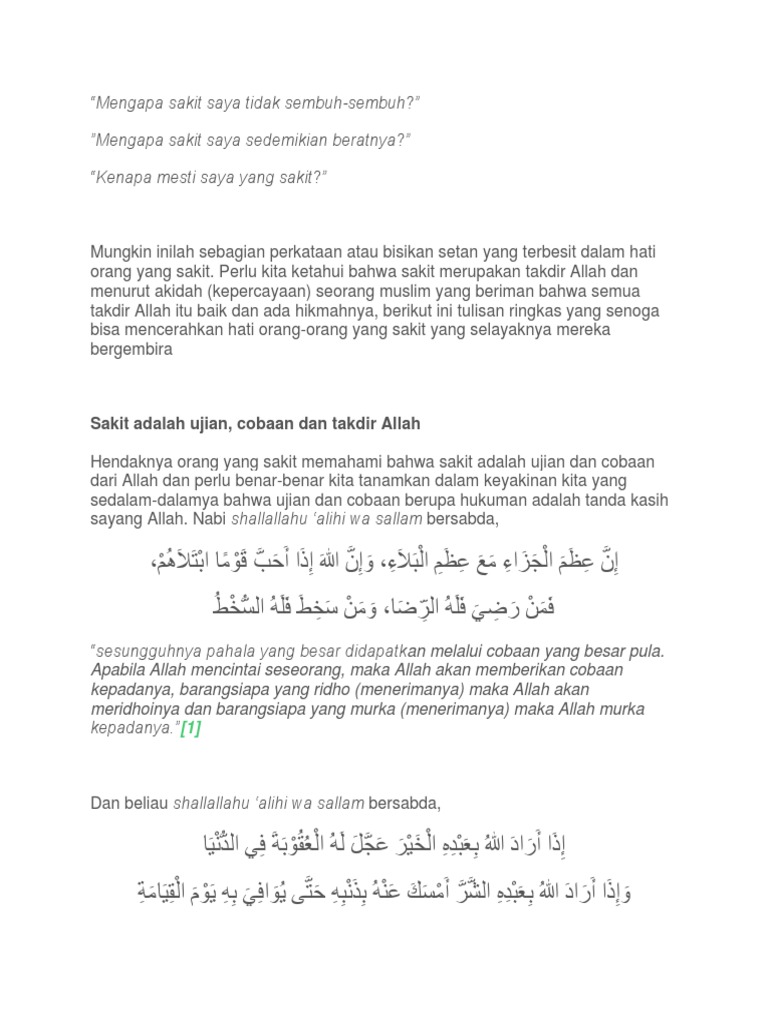 "Mengapa sakit saya tidak sembuh-sembuh?"
"Mengapa sakit saya sedemikian beratnya?"
"Kenapa mesti saya yang sakit?"
Mungkin inilah sebagian perkataan atau bisikan setan yang terbesit dalam hati
orang yang sakit. Perlu kita ketahui bahwa sakit merupakan takdir Allah dan
menurut akidah (kepercayaan) seorang muslim yang beriman bahwa semua
takdir Allah itu baik dan ada hikmahnya, berikut ini tulisan ringkas yang senoga
bisa mencerahkan hati orang-orang yang sakit yang selayaknya mereka
bergembira
Sakit adalah ujian, cobaan dan takdir Allah
Hendaknya orang yang sakit memahami bahwa sakit adalah ujian dan cobaan
dari Allah dan perlu benar-benar kita tanamkan dalam keyakinan kita yang
sedalam-dalamya bahwa ujian dan cobaan berupa hukuman adalah tanda kasih
sayang Allah. Nabi shallallahu 'alihi wa sallam bersabda,
إِنَّ عِظَمَ الْجَزَاءِ مَعَ عِظَمِ الْبَلاَءِ، وَإِنَّ اللهَ إِذَا أَحَبَّ قَوْمًا ابْتَلاَهُمْ،
فَمَنْ رَضِيَ فَلَهُ الرِّضَا، وَمَنْ سَخِطَ فَلَهُ السُّخْطُ
"sesungguhnya pahala yang besar didapatkan melalui cobaan yang besar pula.
Apabila Allah mencintai seseorang, maka Allah akan memberikan cobaan
kepadanya, barangsiapa yang ridho (menerimanya) maka Allah akan
meridhoinya dan barangsiapa yang murka (menerimanya) maka Allah murka
kepadanya."[1]
Dan beliau shallallahu 'alihi wa sallam bersabda,
إِذَا أَرَادَ اللهُ بِعَبْدِهِ الْخَيْرَ عَجَّلَ لَهُ الْعُقُوْبَةَ فِي الدُّنْيَا
وَإِذَا أَرَادَ اللهُ بِعَبْدِهِ الشَّرَّ أَمْسَكَ عَنْهُ بِذَنْبِهِ حَتَّى يُوَافِيَ بِهِ يَوْمَ الْقِيَامَةِ